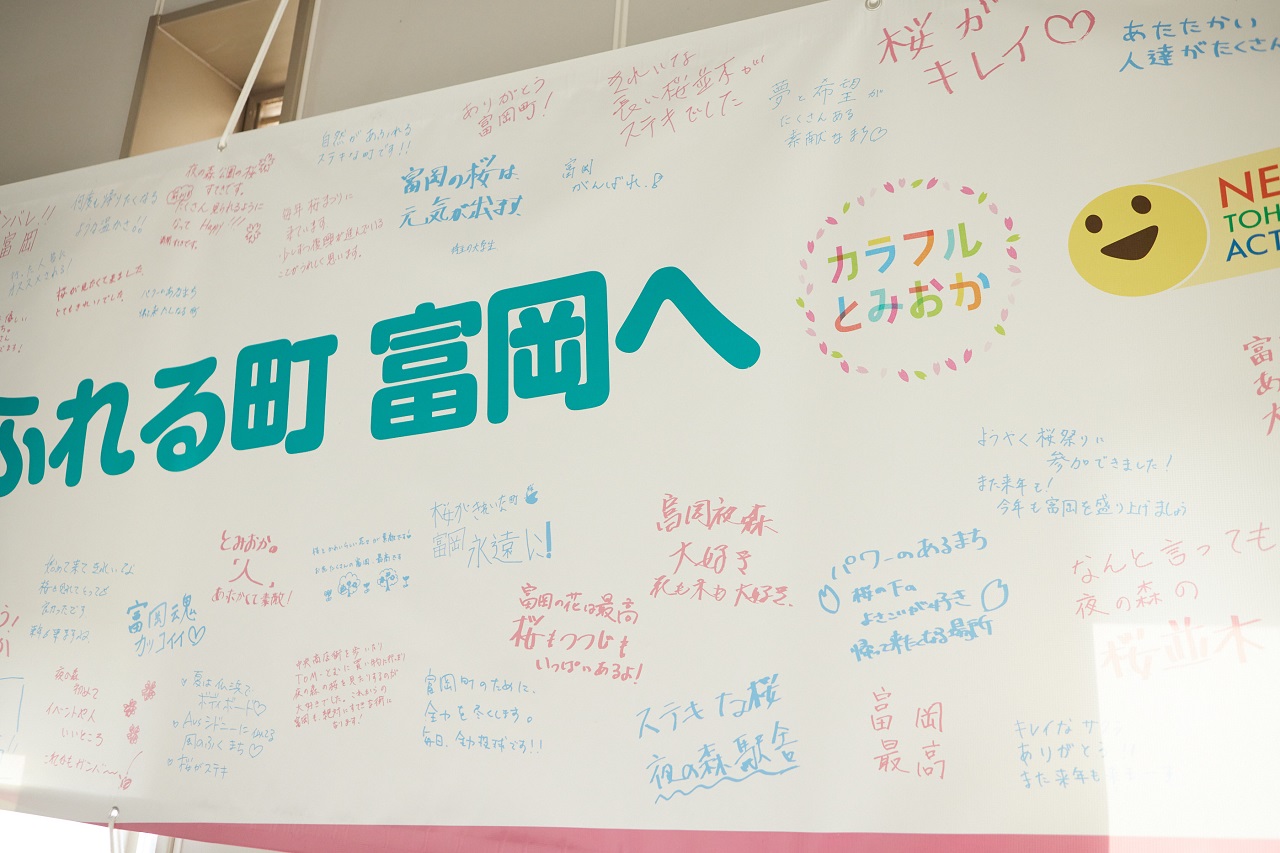 桜が
キレイ♡
あたたかい
人達がたくさん
ありがとう
富岡町!
きれいな
長い桜並木が
ステキでした
夢と希望が
にたくさんある
素敵なまち♡
自然があふれる
ステキな町です!!
富岡の桜は
元気が出ます
富岡
がんばれ!
夜の森公園の桜
すてきです。
たくさん見られるように
なって Happy!!!
毎年桜まつりに
来ています。
少しずつ復興が進んでいる
ことがうれしく思います。
何度も帰りたくなる
ような温かさ!!
ンバレ!!
富岡
桜が見たくて来ました
とてもきれいでした
カラフル
とみおか
NE
TOH
ACT
ふれる町 富岡へ
ようやく桜祭りに
参加できました!
また来年も!
今年も富岡を盛り上げましょう
桜がきれいな町
富岡 永遠に!
とみおか。
人、
あたたかくて素敵!
富岡魂
カッコイイ♡
富岡夜の森
大好き
花も木も大好き.
富岡の花は最高
桜もつつじも
いっぱいあるよ!
パワーのあるまち
桜の下の
よさこいが好き
帰って来たくなる場所
なんと言っても
夜の森の
桜並木
夜の森
初めて
イベントや人
いいところ
夏は仏浜で
ボディボード♡
桜がステキ
富岡町のために、
全力を尽くします。
毎日、全力投球です!!
ステキな桜
夜の森駅舎
富岡
最高
キレイな
ありがとう
また来年も